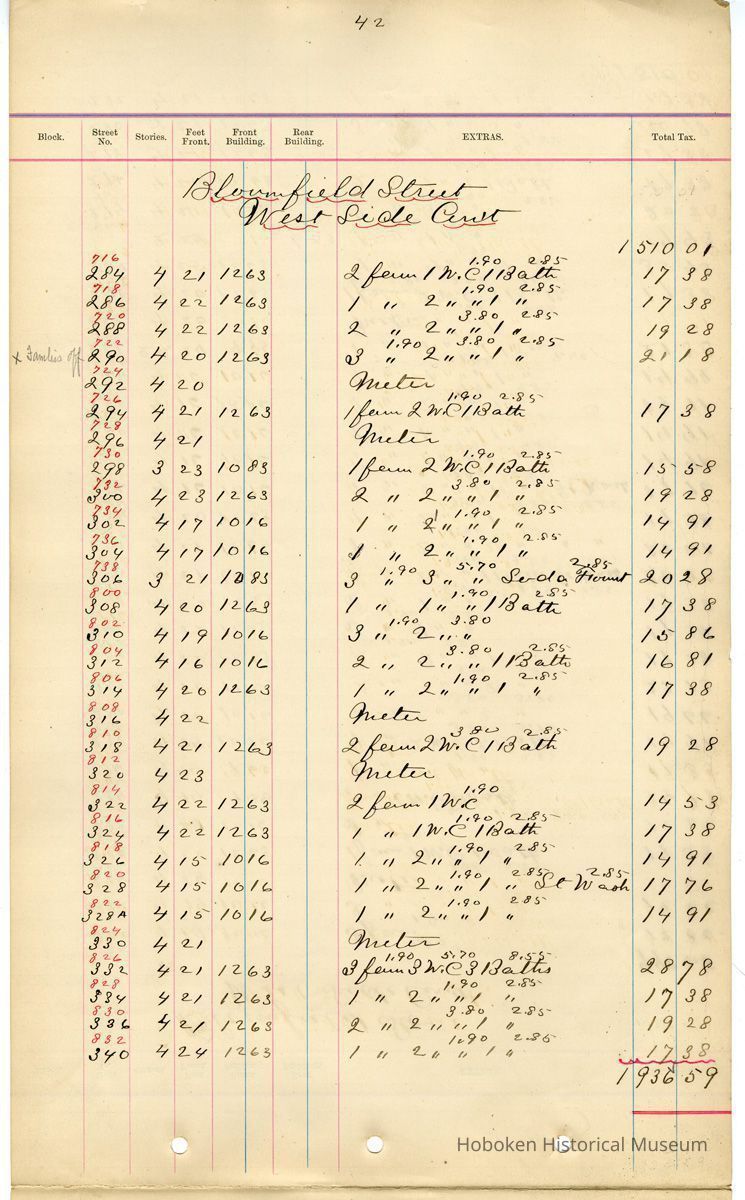 42
Block. Street No. Stories. Feet Front. Front Building. Rear Building. EXTRAS. Total Tax.
Bloomfield Street
West Side Cont
1510 01
716 1.90 2.85
284 4 21 1263 2 fam 1 W.C 1 Bath 17 38
718 1.90 2.85
286 4 22 1263 1 " 2 " " 1 " 17 38
720 3.80 2.85
288 4 22 1263 2 " 2 " " 1 " 19 28
722 1.90 3.80 2.85
x Families off 290 4 20 1263 3 " 2 " " 1 " 21 18
724
292 4 20 Meter
726 1.90 2.85
294 4 21 1263 1 fam 2 W.C 1 Bath 17 38
728
296 4 21 Meter
730 1.90 2.85
298 3 23 1083 1 fam 2 W.C 1 Bath 15 58
732 3.80 2.85
300 4 23 1263 2 " 2 " " 1 " 19 28
734 1.90 2.85
302 4 17 1016 1 " 2 " " 1 " 14 91
736 1.90 2.85
304 4 17 1016 1 " 2 " " 1 " 14 91
738 1.90 5.70 2.85
306 3 21 1083 3 " 3 " " Soda Fount 20 28
800 1.90 2.85
308 4 20 1263 1 " 1 " " 1 Bath 17 38
802 1.90 3.80
310 4 19 1016 3 " 2 " " 15 86
804 3.80 2.85
312 4 16 1016 2 " 2 " " 1 Bath 16 81
806 1.90 2.85
314 4 20 1263 1 " 2 " " 1 " 17 38
808
316 4 22 Meter
810 3.80 2.85
318 4 21 1263 2 fam 2 W.C 1 Bath 19 28
812
320 4 23 Meter
814 1.90
322 4 22 1263 2 fam 1 W.C 14 53
816 1.90 2.85
324 4 22 1263 1 " 1 W.C 1 Bath 17 38
818 1.90 2.85
326 4 15 1016 1 " 2 " " 1 " 14 91
820 1.90 2.85 2.85
328 4 15 1016 1 " 2 " " 1 " St Wash 17 76
822 1.90 2.85
328A 4 15 1016 1 " 2 " " 1 " 14 91
824
330 4 21 Meter
826 1.90 5.70 8.55
332 4 21 1263 3 fam 3 W.C 3 Baths 28 78
828 1.90 2.85
334 4 21 1263 1 " 2 " " 1 " 17 38
830 3.80 2.85
336 4 21 1263 2 " 2 " " 1 " 19 28
832 1.90 2.85
340 4 24 1263 1 " 2 " " 1 " 17 38
1936 59
Hoboken Historical Museum